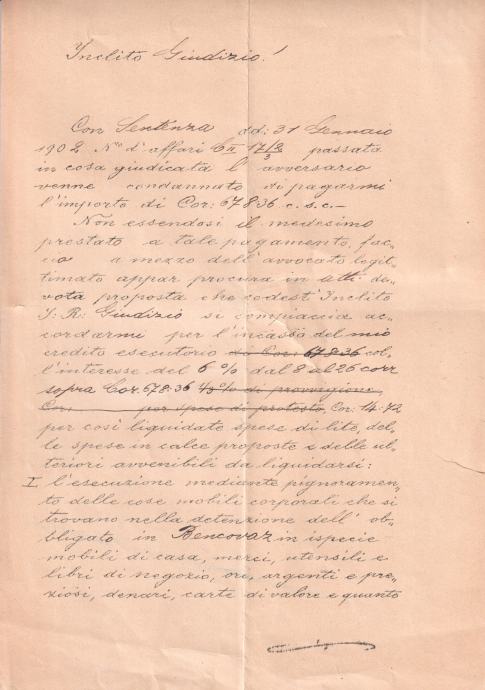 Inclito Giudizio!
Con Sentenza dd: 31 Gennaio
1908. Nro d'affari C II 17/8 passata
3
in cosa giudicata l'avversario
venne condannato di pagarmi
l'importo di Cor: 678·36 c. s. c.-
Non essendosi il medesimo
prestato a tale pagamento, fac„
cio a mezzo dell'avvocato legit„
timato appar procura in atti de„
vota proposta che codest'Inclito
I: R: Giudizio si compiaccia ac„
cordarmi per l'incasso del mio
credito esecutorio di Cor: 678·36 col„
l'interesse del 6% dal 8 al 26 corr
sopra Cor. 678·36 ⅓% di provvigione,
Cor: per spese di protesto, Cor: 14·72
per così liquidate spese di lite, del„
le spese in calce proposte e delle ul„
teriori avvenibili da liquidarsi:
I l'esecuzione mediante pignoramen„
to delle cose mobili corporali che si
trovano nella detenzione dell'ob„
bligato in Bencovaz in ispecie
mobili di casa, merci, utensili e
libri di negozio, ori, argenti e pre„
ziosi, denari, carte di valore e quanto